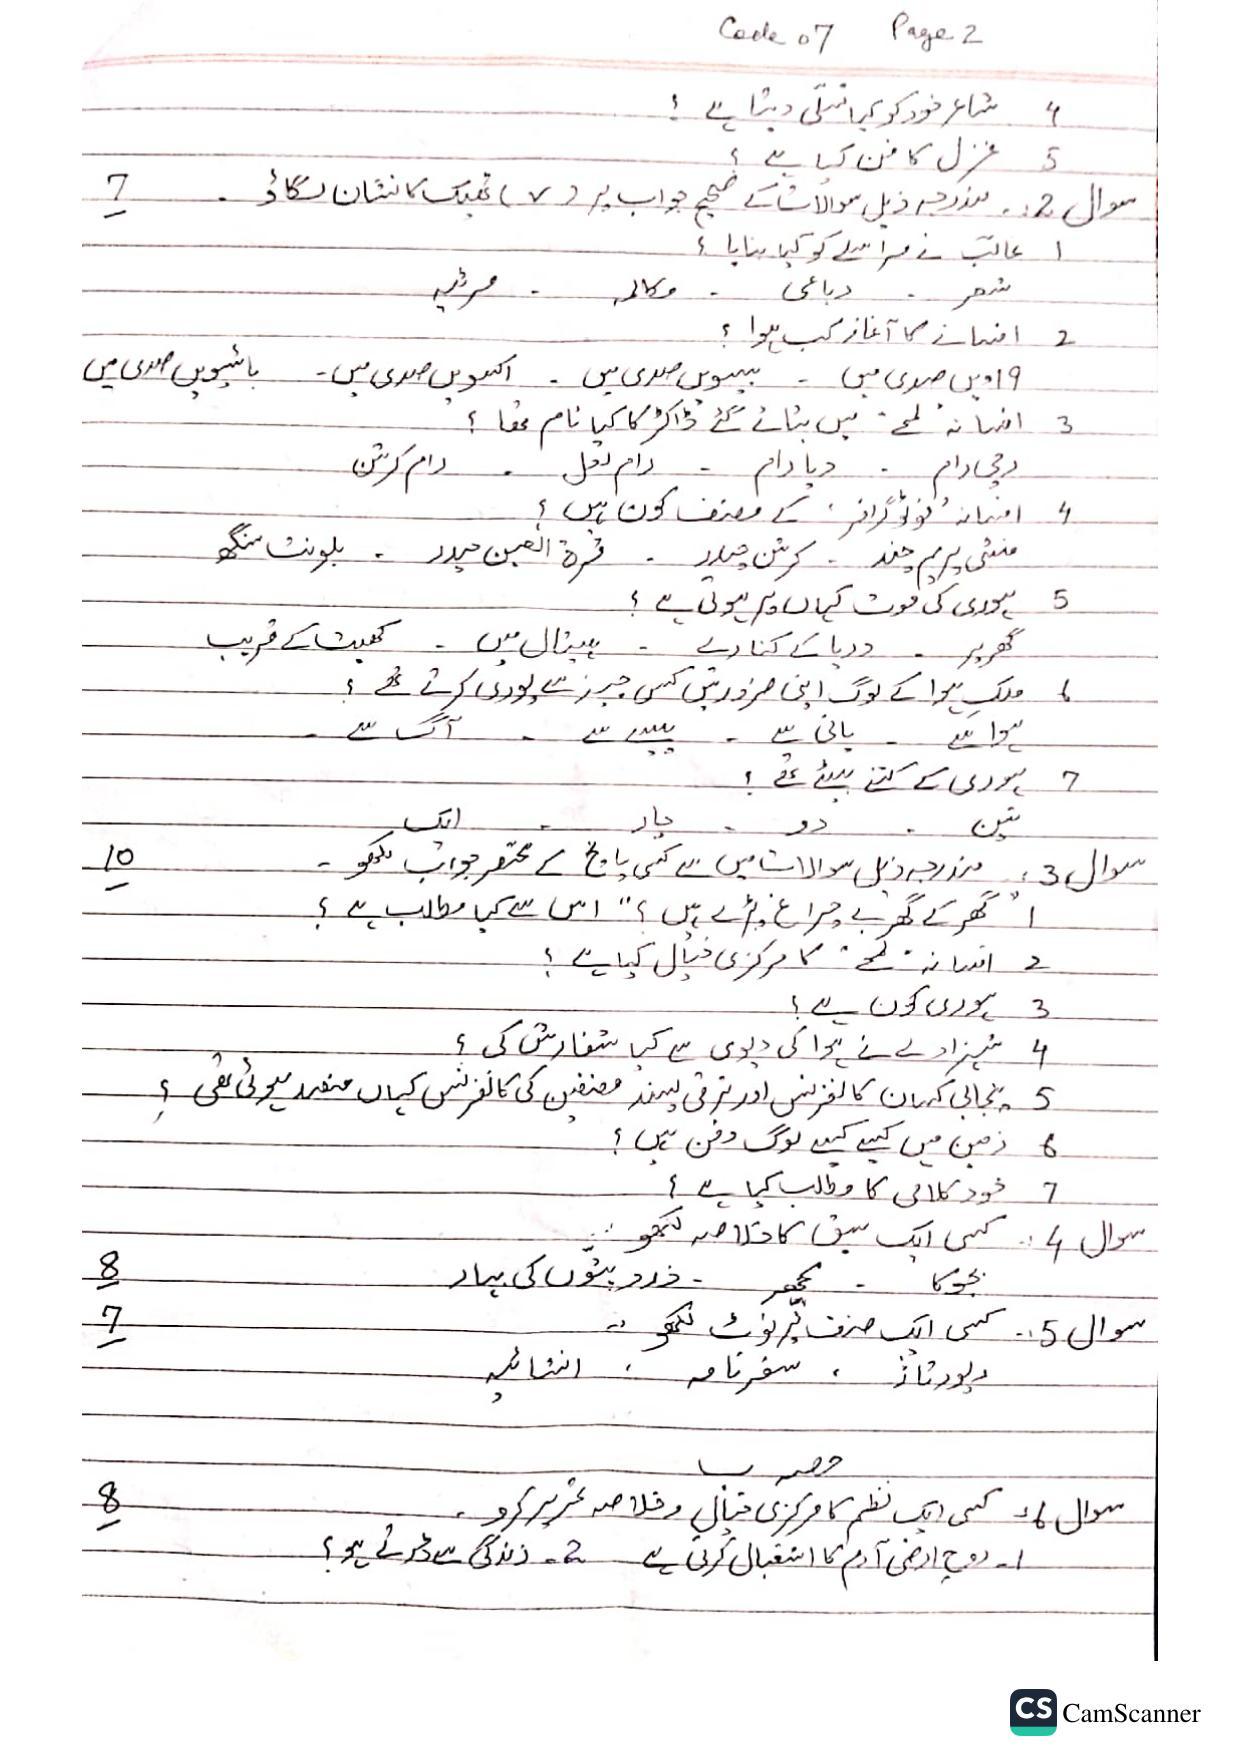 Code 07 Page 2
4 شاعر خود کو کیا تسلّی دیتا ہے ؟
5 غزل کا فن کیا ہے ؟
سوال 2:. مندرجہ ذیل سوالات کے صحیح جواب پر (✓) ٹھیک کا نشان لگائی . 7
1 غالبؔ نے مراسلے کو کیا بنایا ؟
شعر . رباعی . مکالمہ . مرثیہ
2 افسانے کا آغاز کب ہوا ؟
19ویں صدی میں - بیسویں صدی میں - اکسویں صدی میں - بائیسویں صدی میں
3 افسانہ "لمحے" میں بتائے گئے ڈاکڑ کا کیا نام تھا ؟
رام . دیا رام - رام لعل . رام کرشن
4 افسانہ 'فوٹوگرافر' کے مصنف کون ہیں ؟
منشی پریم چند - کرشن چندر - قرۃ العین حیدر - بلونت سنگھ
5 ہوری کی موت کہاں پر ہوتی ہے ؟
گھر پر - دریا کے کنارے - ہسپتال میں - کھیت کے قریب
6 ملکِ ہوا کے لوگ اپنی ضرورتیں کس چیز سے پوری کرتے تھے ؟
ہوا سے - پانی سے - پیسے سے - آگ سے -
7 ہوری کے کتنے بیٹے تھے ؟
تین . دو - چار - ایک
سوال 3: مندرجہ ذیل سوالات میں سے کسی پانچ کے مختصر جواب لکھو - 10
1 "گھر کے گھر بے چراغ پڑے ہیں ؟" اس سے کیا مطلب ہے ؟
2 افسانہ "لمحے" کا مرکزی خیال کیا ہے ؟
3 ہوری کون ہے ؟
4 شہزادے نے ہوا کی دیوی سے کیا سفارش کی ؟
5 پنجابی کسان کانفرنس اور ترقی پسند مصنفین کی کانفرنس کہاں منعقد ہوئی تھی ؟
6 زمین میں کیسے کیسے لوگ دفن ہیں ؟
7 خود کلامی کا مطلب کیا ہے ؟
سوال 4:. کسی ایک سبق کا خلاصہ لکھو :.
بجوکا - مچھر - زرد پتّوں کی بہار 8
سوال 5:. کسی ایک صنف پر نوٹ لکھو :- 7
رپورتاژ ، سفرنامہ ، انشائیہ
حصہ ب
سوال 6: کسی ایک نظم کا مرکزی خیال و خلاصہ تحریر کرو . 8
1- روحِ ارضی آدم کا استقبال کرتی ہے 2- زندگی سے ڈرتے ہو ؟
CS CamScanner